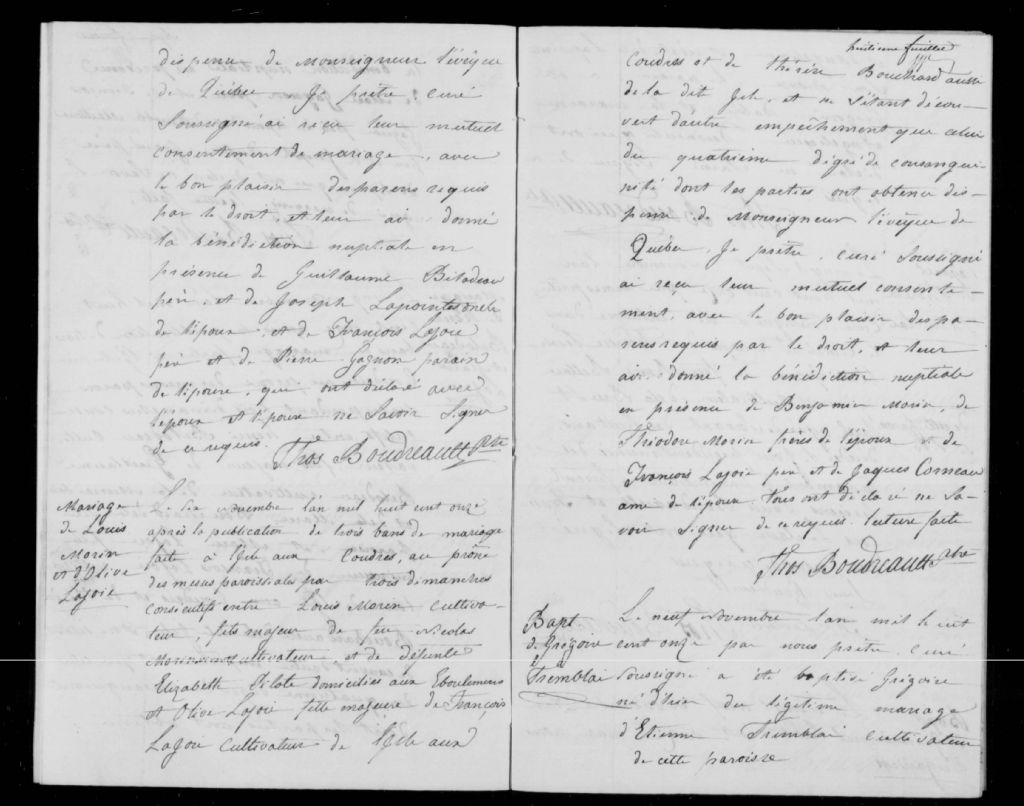 dispense de Monseigneur l'évêque
de Québec Je prêtre curé
Soussigné ai reçu leur mutuel
consentement de mariage, avec
le bon plaisir des parens requis
par le droit, et leur ai donné
la bénédiction nuptiale en
présence de Guillaume Bilodeau
pèr, et de Joseph Lapointe oncle
de l'époux, et de François Lajoie
pèr et de Pierre Gagnon parain
de l'épouse, qui ont déclaré avec
l'époux et l'épouse ne Savoir Signer
de ce requis.
Thos Boudreault Ptre
Mariage
de Louis
Morin
et d'Olive
Lajoie
Le six novembre lan mil huit cent onze
après la publication de trois bans de mariage
faite à l'Isle aux Coudres, au prône
des messes paroissiales par trois dimanches
consécutifs entre Louis Morin cultiva-
teur, fils majeur de feu Nicolas
Morin cultivateur et de défunte
Elizabeth Pilote domiciliés aux Eboulemens
et Olive Lajoie fille majeure de François
Lajoie cultivateur de l'Isle aux
huitieme feuillet
Coudres et de thérèse Bouchard aussi
de la dit Isle, et ne s'étant décou-
vert d'autre empêchement que celui
du quatrième dégré de consangui-
nité dont les parties ont obtenu dis-
pense de Monseigneur l'évêque de
Québec, Je prêtre, curé Soussigné
ai reçu leur mutuel consente-
ment, avec le bon plaisir des pa-
rens requis par le droit, et leur
ai donné la bénédiction nuptiale
en présence de Benjamin Morin, de
Théodore Morin frères de l'époux & de
François Lajoie pèr et de Jaques Corneau
ami de l'époux. Tous ont déclaré ne Sa-
voir Signer de ce requis. lecture faite
Thos Boudreault Ptre
Bapt
de Grégoire
Tremblai
Le neuf Novembre lan mil huit
cent onze par nous prêtre, curé
Soussigné a été baptisé Grégoire
né d'hier du légitime mariage
d'Etienne Tremblai cultivateur
de cette paroisse